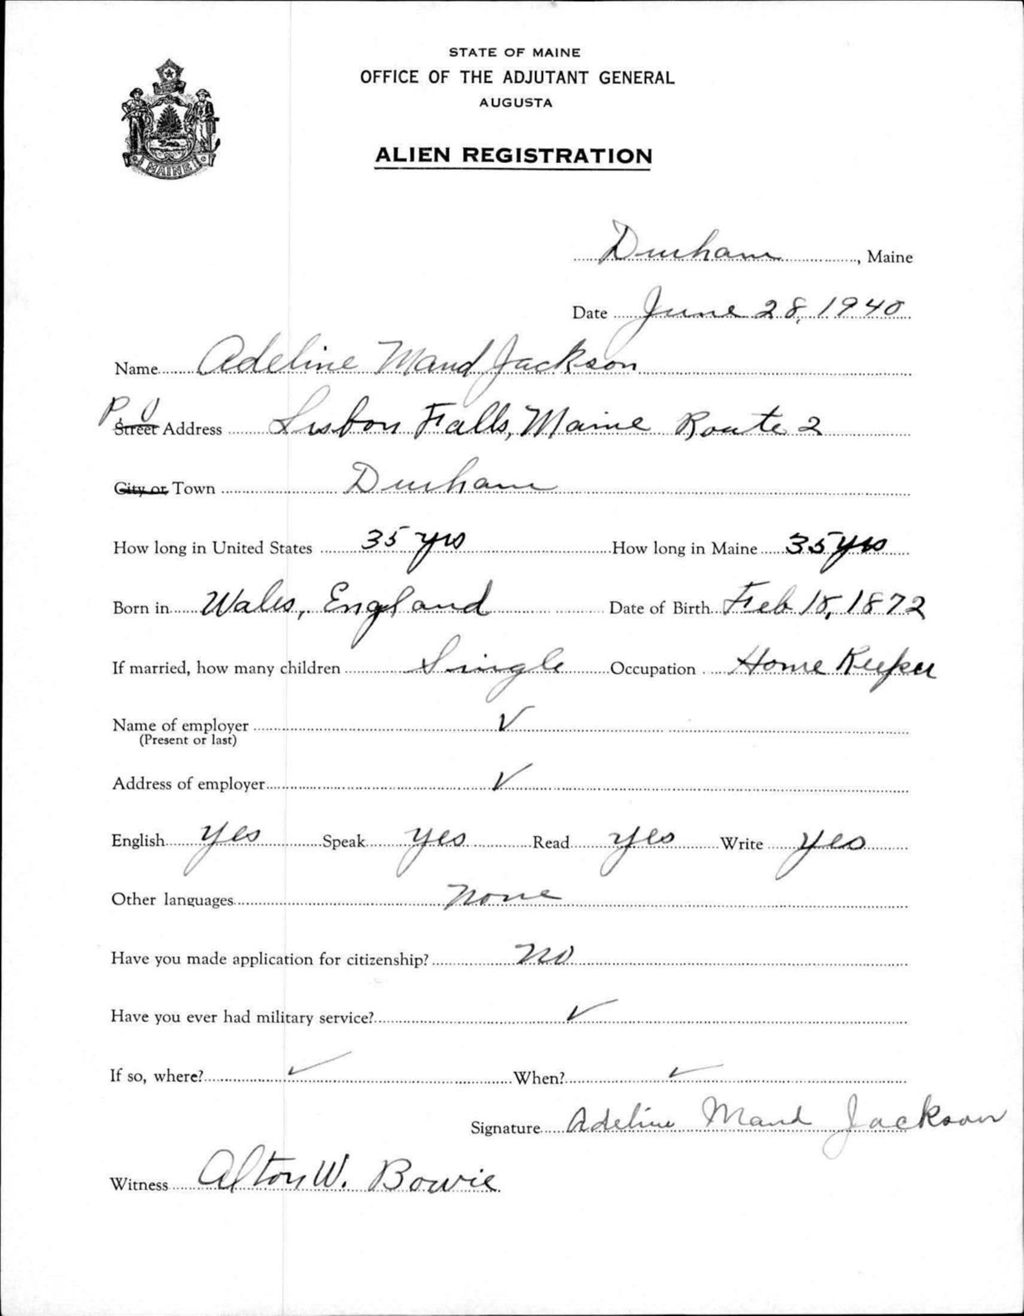 STATE OF MAINE
OFFICE OF THE ADJUTANT GENERAL
AUGUSTA
ALIEN REGISTRATION
MAINE
Durham, Maine
Date June 28, 1940
Name Adeline Maud Jackson
P O
Street Address Lisbon Falls, Maine Route 2
City or Town Durham
How long in United States 35 yrs How long in Maine 35 yrs
Born in Wales, England Date of Birth Feb 18, 1872
If married, how many children Single Occupation Home Keeper
Name of employer ✓
(Present or last)
Address of employer ✓
English yes Speak yes Read yes Write yes
Other languages None
Have you made application for citizenship? No
Have you ever had military service? ✓
If so, where? ✓ When? ✓
Signature Adeline Maud Jackson
Witness Alton W. Bowie